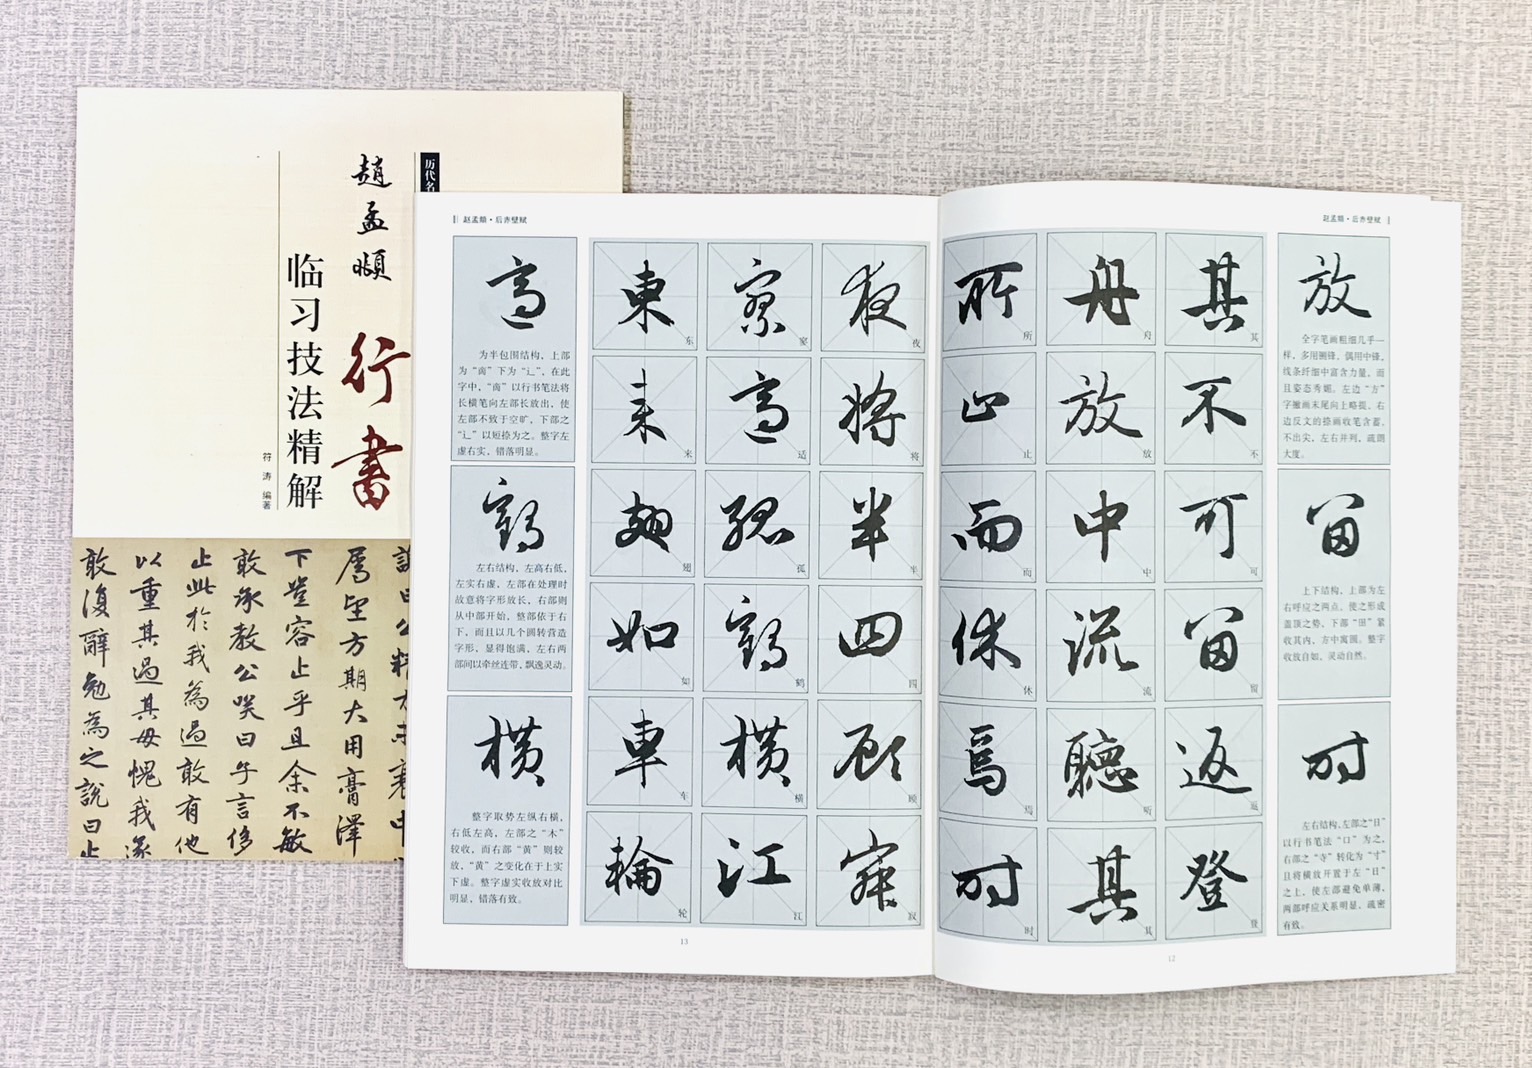 历代名
趙孟頫
行書
临习技法精解
符涛 编著
厲望方期大用膏澤
下豈容止乎且余不敏
敢承教公咲曰午言侈
止此於我為過敢有他
以重其過其毋愧我深
敢復辭勉為之說曰止
赵孟頫·后赤壁赋
放
全字笔画粗细几乎一
样，多用侧锋，偶用中锋，
线条纤细中富含力量，而
且姿态秀媚。左边“方”
字撇画末尾向上略提，右
边反文的捺画收笔含蓄，
不出尖，左右并列，疏朗
大度。
留
上下结构，上部为左
右呼应之两点，使之形成
盖顶之势，下部“田”紧
收其内，方中寓圆。整字
收放自如，灵动自然。
时
左右结构，左部之“日”
以行书笔法“口”为之，
右部之“寺”转化为“寸”
且将横放开置于左“日”
之上，使左部避免单薄，
两部呼应关系明显，疏密
有致。
其 其
不 不
可 可
留 留
返 返
登 登
舟 舟
放 放
中 中
流 流
聽 听
其 其
所 所
止 止
而 而
休 休
焉 焉
时 时
12
赵孟頫·后赤壁赋
夜 夜
将 将
半 半
四 四
顾 顾
寂 寂
寥 寥
適 适
孤 孤
鶴 鹤
横 横
江 江
東 东
来 来
翅 翅
如 如
車 车
輪 轮
適
为半包围结构，上部
为“啇”下为“辶”，在此
字中，“啇”以行书笔法将
长横笔向左部长放出，使
左部不致于空旷，下部之
“辶”以短捺为之。整字左
虚右实，错落明显。
鶴
左右结构，左高右低，
左实右虚，左部在处理时
故意将字形放长，右部则
从中部开始，整部依于右
下，而且以几个圆转营造
字形，显得饱满，左右两
部间以牵丝连带，飘逸灵动。
横
整字取势左纵右横，
右低左高，左部之“木”
较收，而右部“黄”则较
放，“黄”之变化在于上实
下虚。整字虚实收放对比
明显，错落有致。
13